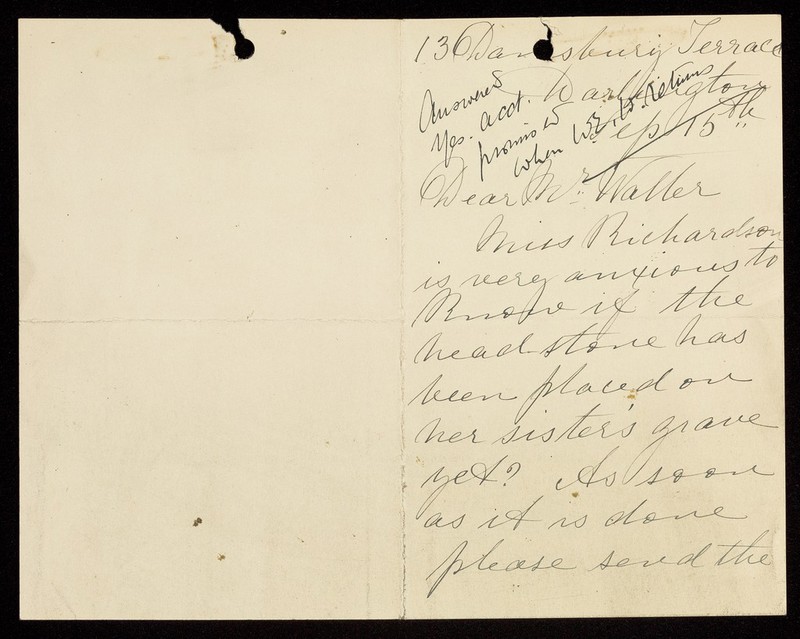 13 Danesbury Terrace
Darlington
Sep 15th
Answered
Yes. acct.
promised
when returns
Dear Mr Walter
Miss Richardson
is very anxious to
know if the
head-stone has
been placed on
her sister's grave
yet? As soon
as it is done
please send the